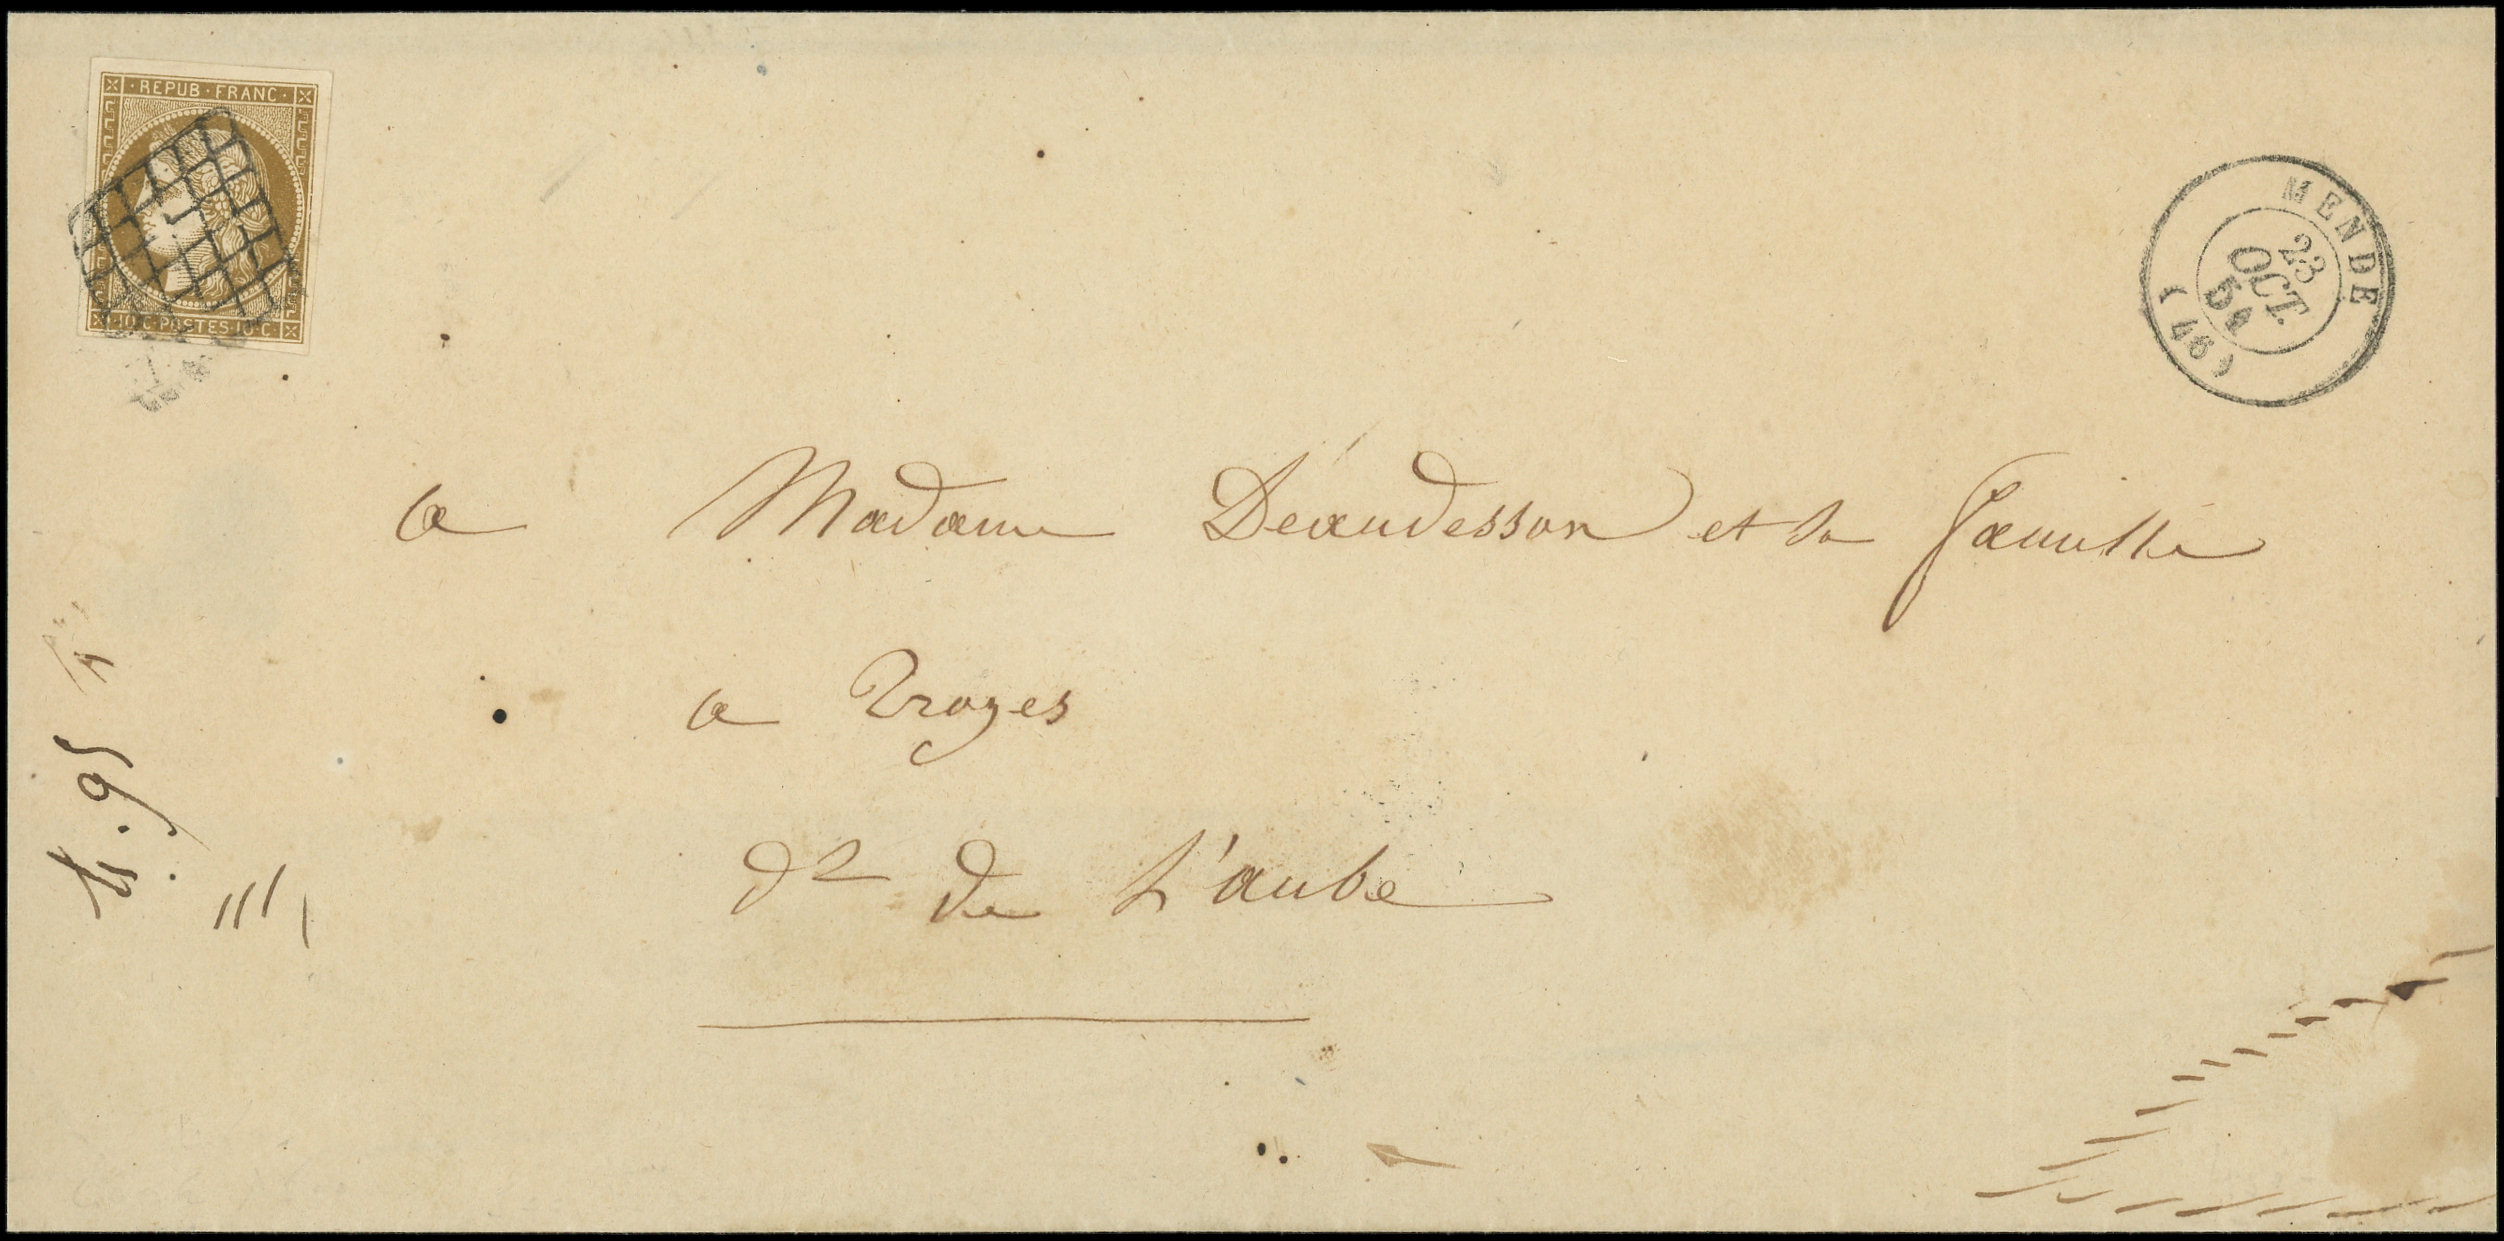 · REPUB · FRANC ·
10·C·POSTES·10·C·
MENDE
23
OCT
(46)
a Madame Déaudesson et sa famille
a Troyes
de L'aube